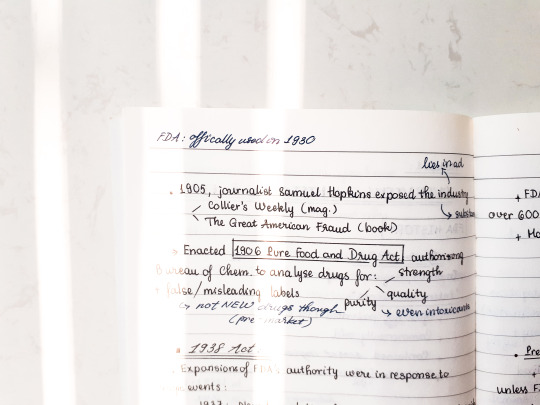 FDA: offically used in 1930
lies in ad
• 1905, journalist Samuel Hopkins exposed the industry
Collier's Weekly (mag.)
The Great American Fraud (book)
• Enacted 1906 Pure Food and Drug Act authorising
Bureau of Chem. to analyse drugs for: strength
false/misleading labels quality
purity
→ not NEW drugs though → even intoxicants
(pre-market)
• 1938 Act
• Expansions of FDA: authority were in response to
events:
+ FDA
over 600
•
unless